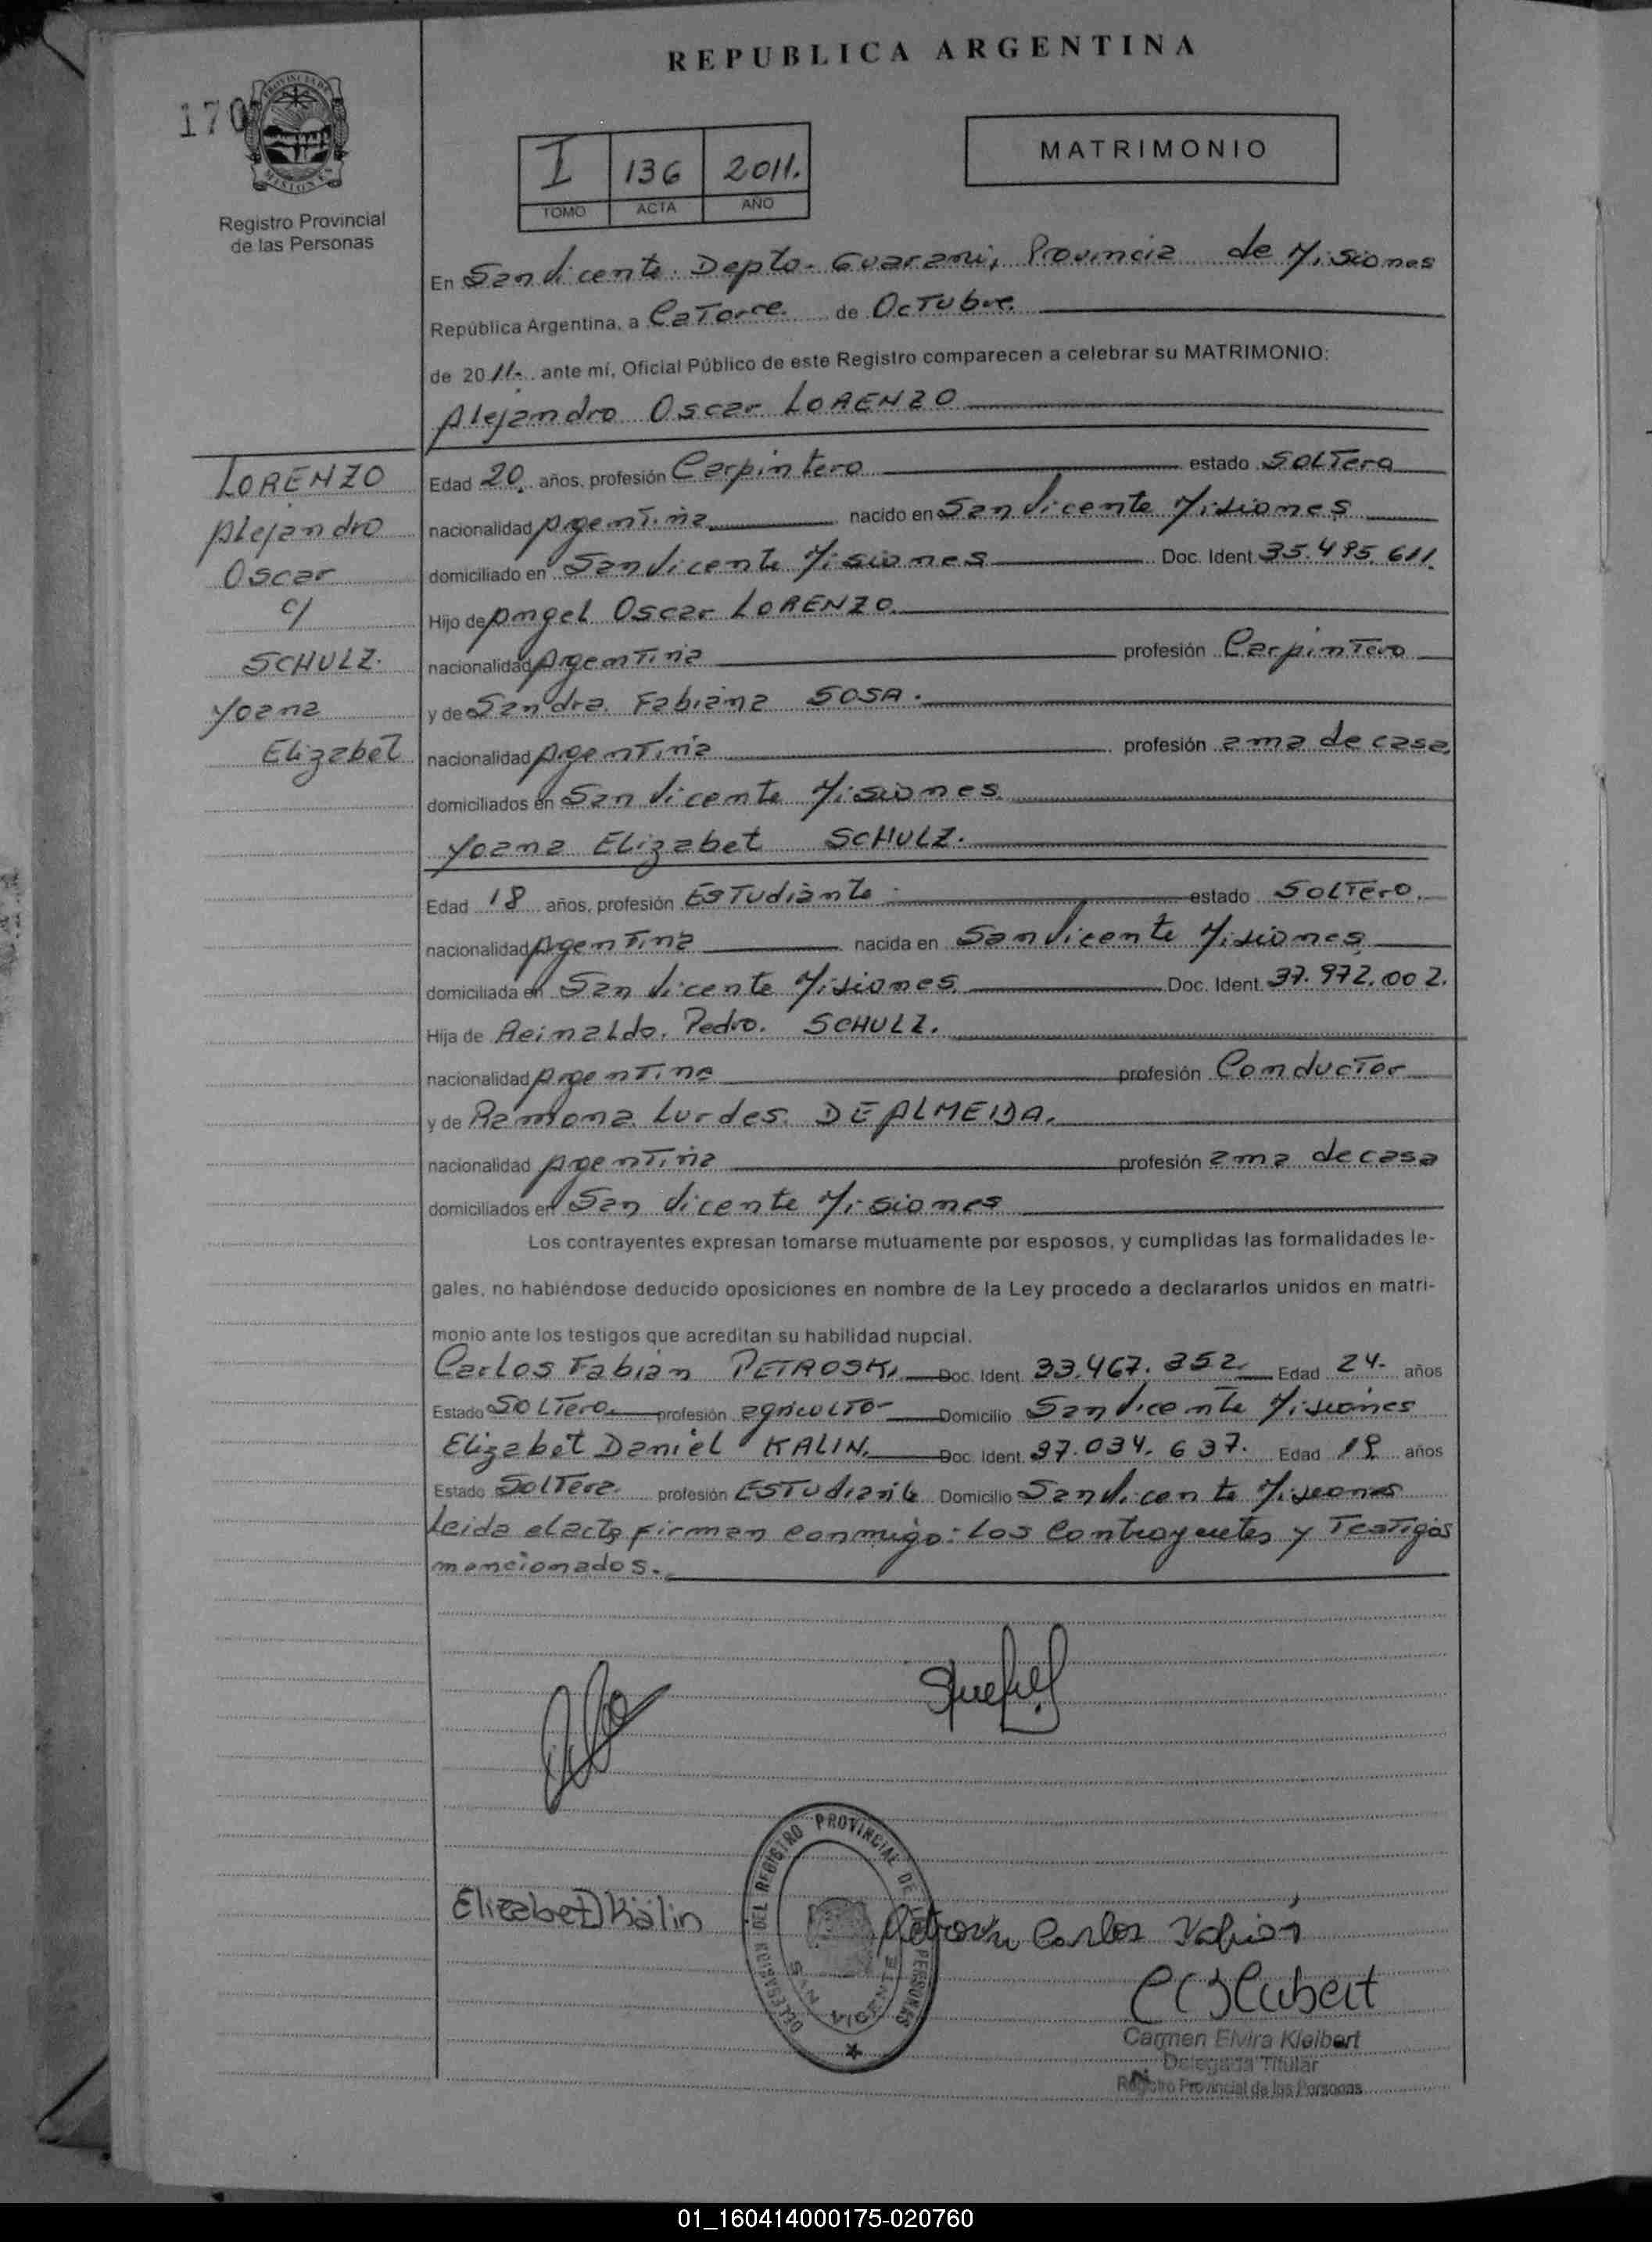 REPUBLICA ARGENTINA
170
PROVINCIA DE
MISIONES
Registro Provincial
de las Personas
I 136 2011.
TOMO ACTA AÑO
MATRIMONIO
En San Vicente. Depto. Guarani, Provincia de Misiones
República Argentina, a Catorce de Octubre
de 2011.- ante mí, Oficial Público de este Registro comparecen a celebrar su MATRIMONIO:
Alejandro Oscar LORENZO
LORENZO
Alejandro
Oscar
c/
SCHULZ.
Yoana
Elizabet
Edad 20. años, profesión Carpintero estado Soltero
nacionalidad Argentina nacido en San Vicente Misiones
domiciliado en San Vicente Misiones Doc. Ident. 35.495.611.
Hijo de Angel Oscar LORENZO.
nacionalidad Argentina profesión Carpintero
y de Sandra Fabiana SOSA.
nacionalidad Argentina profesión ama de casa
domiciliados en San Vicente Misiones
Yoana Elizabet SCHULZ.
Edad 18 años, profesión Estudiante estado Soltero.
nacionalidad Argentina nacida en San Vicente Misiones
domiciliada en San Vicente Misiones Doc. Ident. 37.972.002.
Hija de Reinaldo. Pedro. SCHULZ.
nacionalidad Argentina profesión Conductor
y de Ramona Lurdes. DE ALMEIDA.
nacionalidad Argentina profesión ama de casa
domiciliados en San Vicente Misiones
Los contrayentes expresan tomarse mutuamente por esposos, y cumplidas las formalidades le-
gales, no habiéndose deducido oposiciones en nombre de la Ley procedo a declararlos unidos en matri-
monio ante los testigos que acreditan su habilidad nupcial.
Carlos Fabián PETROSKI Doc. Ident. 33.467.352 Edad 24- años
Estado Soltero profesión agricultor Domicilio San Vicente Misiones
Elizabet Daniel KALIN. Doc. Ident. 37.034.637. Edad 19 años
Estado Soltera profesión Estudiante Domicilio San Vicente Misiones
Leida el acta firman conmigo: Los Contrayentes y Testigos
mencionados.-
Elizabet D Kalin
DELEGACION DEL REGISTRO PROVINCIAL DE PERSONAS
SAN VICENTE
Carlos Fabián
Carmen Elvira Kleibert
Delegada Titular
Registro Provincial de las Personas
01_160414000175-020760